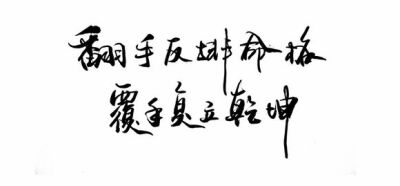 翻手反排命格
覆手复立乾坤